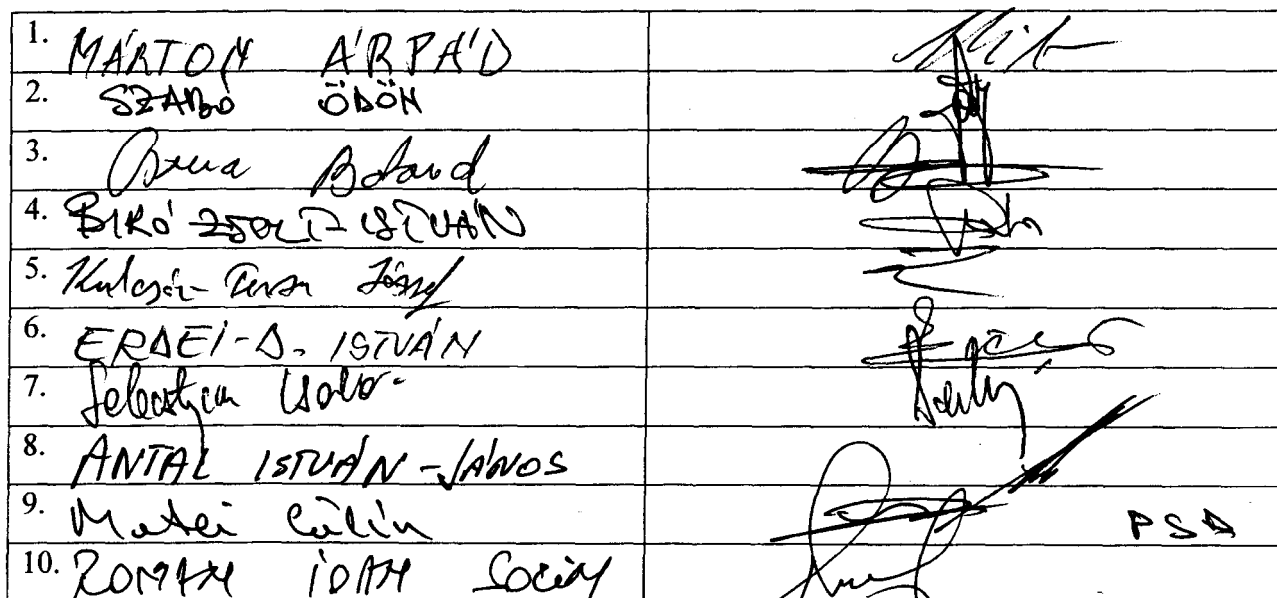 1. MÁRTON ÁRPÁD
2. SZABÓ ÖDÖN
3. Boland
4. BIRÓ ZSOLT-ISTVÁN
5. Kulcsár-Terza József
6. ERDEI-D. ISTVÁN
7. Sebestyen
8. ANTAL ISTVÁN-JÁNOS
9. Matei Călin PSD
10. ROMAN IOAN SORIN